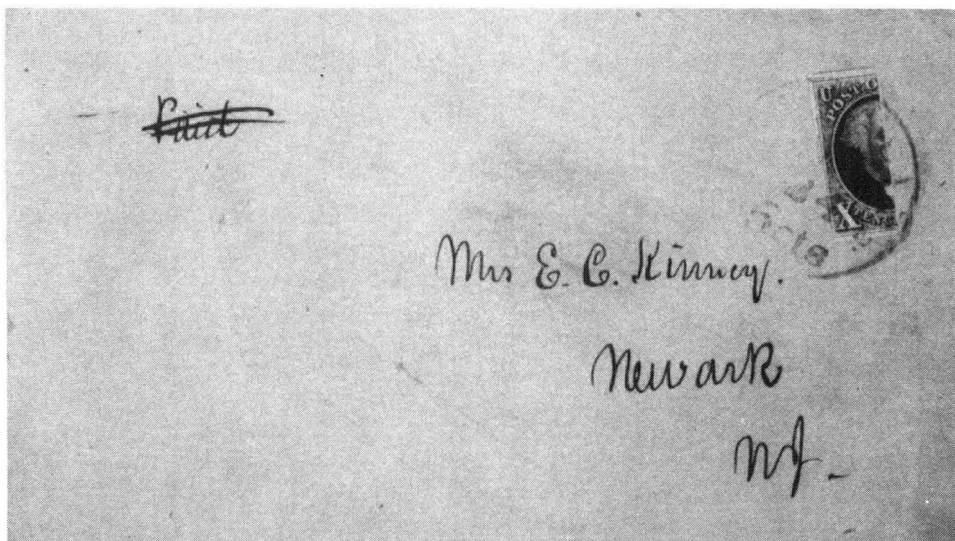 Paid
POST O
X
Mrs E. C. Kinney.
Newark
NJ-